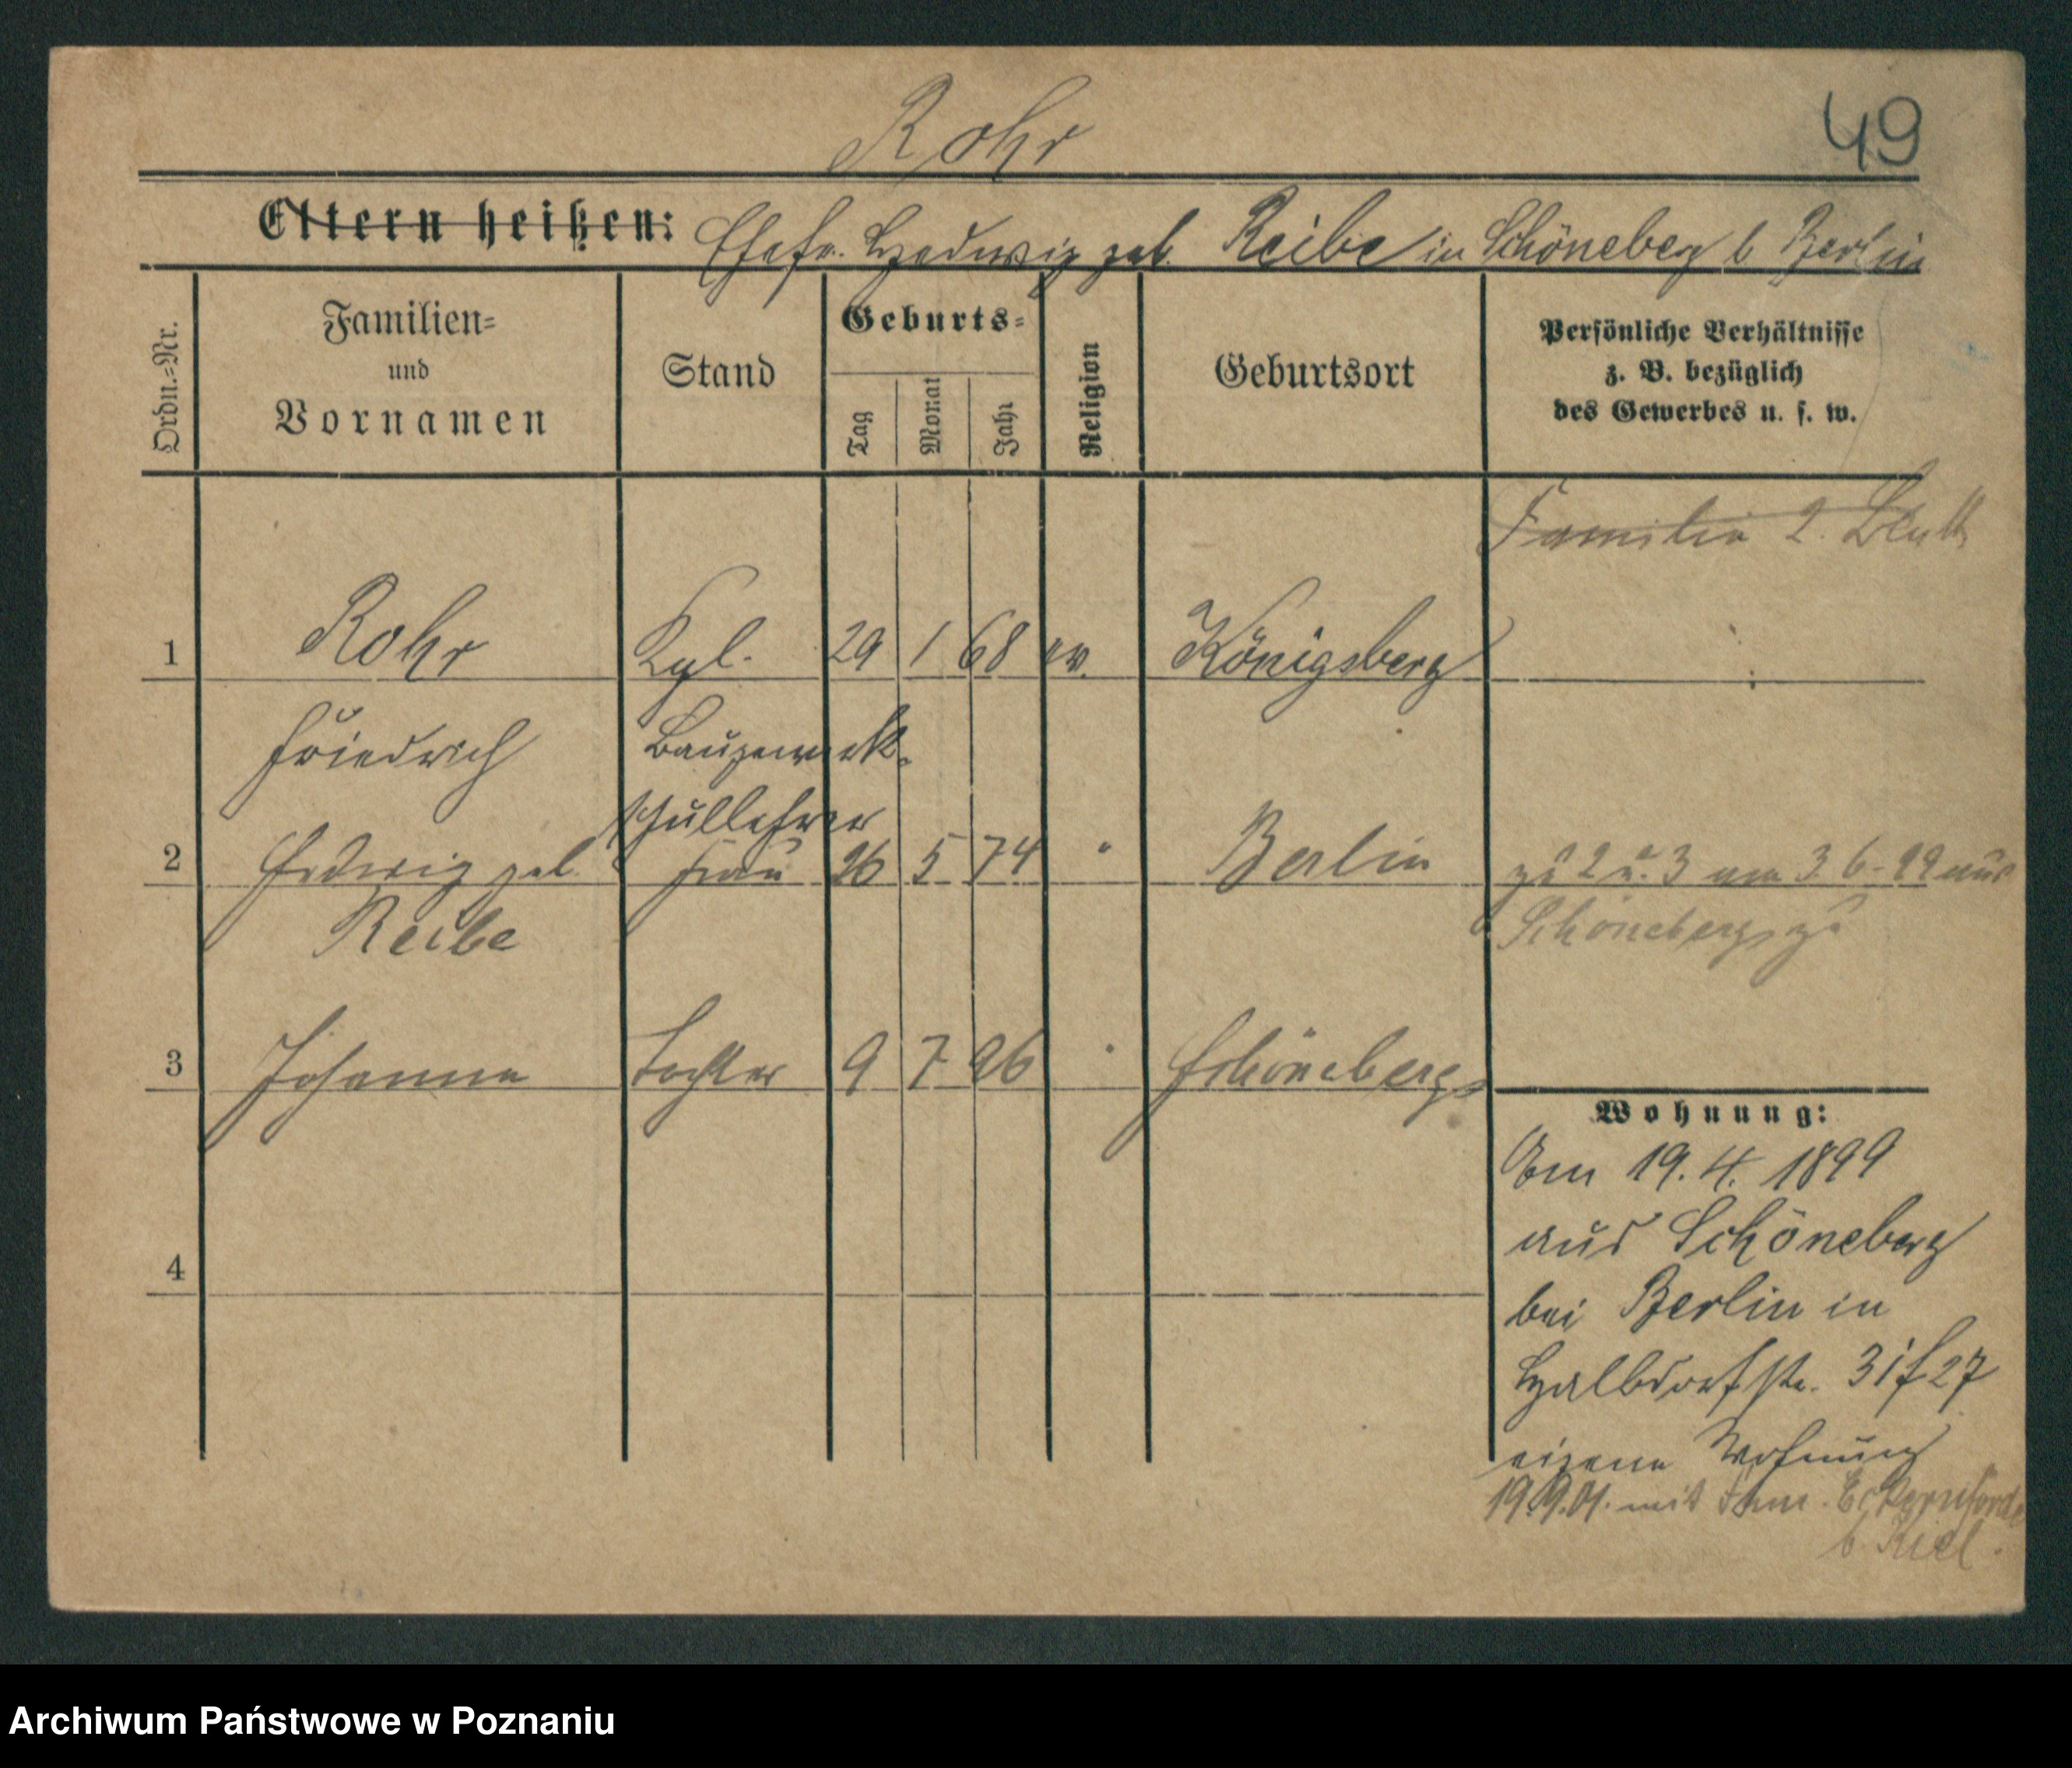 Rohr
49
Eltern heißen: Ehefr. Hedwig geb. Reibe in Schöneberg b Berlin
Ordn.=Nr.
Familien=
und
Vornamen
Stand
Geburts=
Tag
Monat
Jahr
Religion
Geburtsort
Persönliche Verhältnisse
z. B. bezüglich
des Gewerbes u. s. w.
Familie 2.
1 Rohr Kgl. 29 1 68 ev. Königsberg
Friedrich Baugewerk-
schullehrer
2 Hedwig geb. Frau 26 5 74 " Berlin zu 2 u. 3 am 3 6-99 aus
Reibe Schöneberg zu
3 Johanna Tochter 9 7 96 " Schöneberg
Wohnung:
Am 19. 4. 1899
aus Schöneberg
bei Berlin in
Halbdorfstr. 31
eigene Wohnung
19.9.01. mit Fam. Eckernförde
b. Kiel.
4
Archiwum Państwowe w Poznaniu